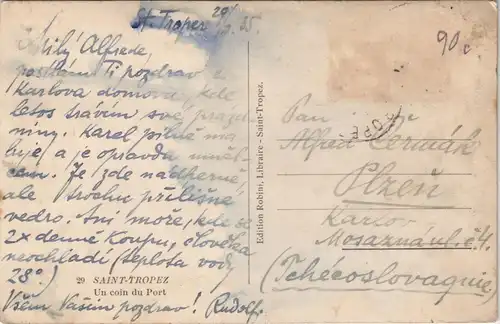 St. Tropez 29/7. 25.
Milý Alfrede,
posílám Ti pozdrav z
Karlova domova, kde
letos trávím své prázd-
niny. Karel pilně ma-
luje, a je opravdu uměl-
cem. Je zde nádherně,
ale trochu přílišné
vedro. Ani moře, kde se
2x denně koupu, člověka
neochladí (teplota vody
28°.)
Všem Vašim pozdrav! Rudolf.
29 SAINT-TROPEZ
Un coin du Port
Edition Robini, Libraire - Saint-Tropez.
90 c
TROPEZ
Pan
Alfred Čermák
Plzeň
Karlov
Mosaznául. č. 4.
(Tchécoslovaquie)